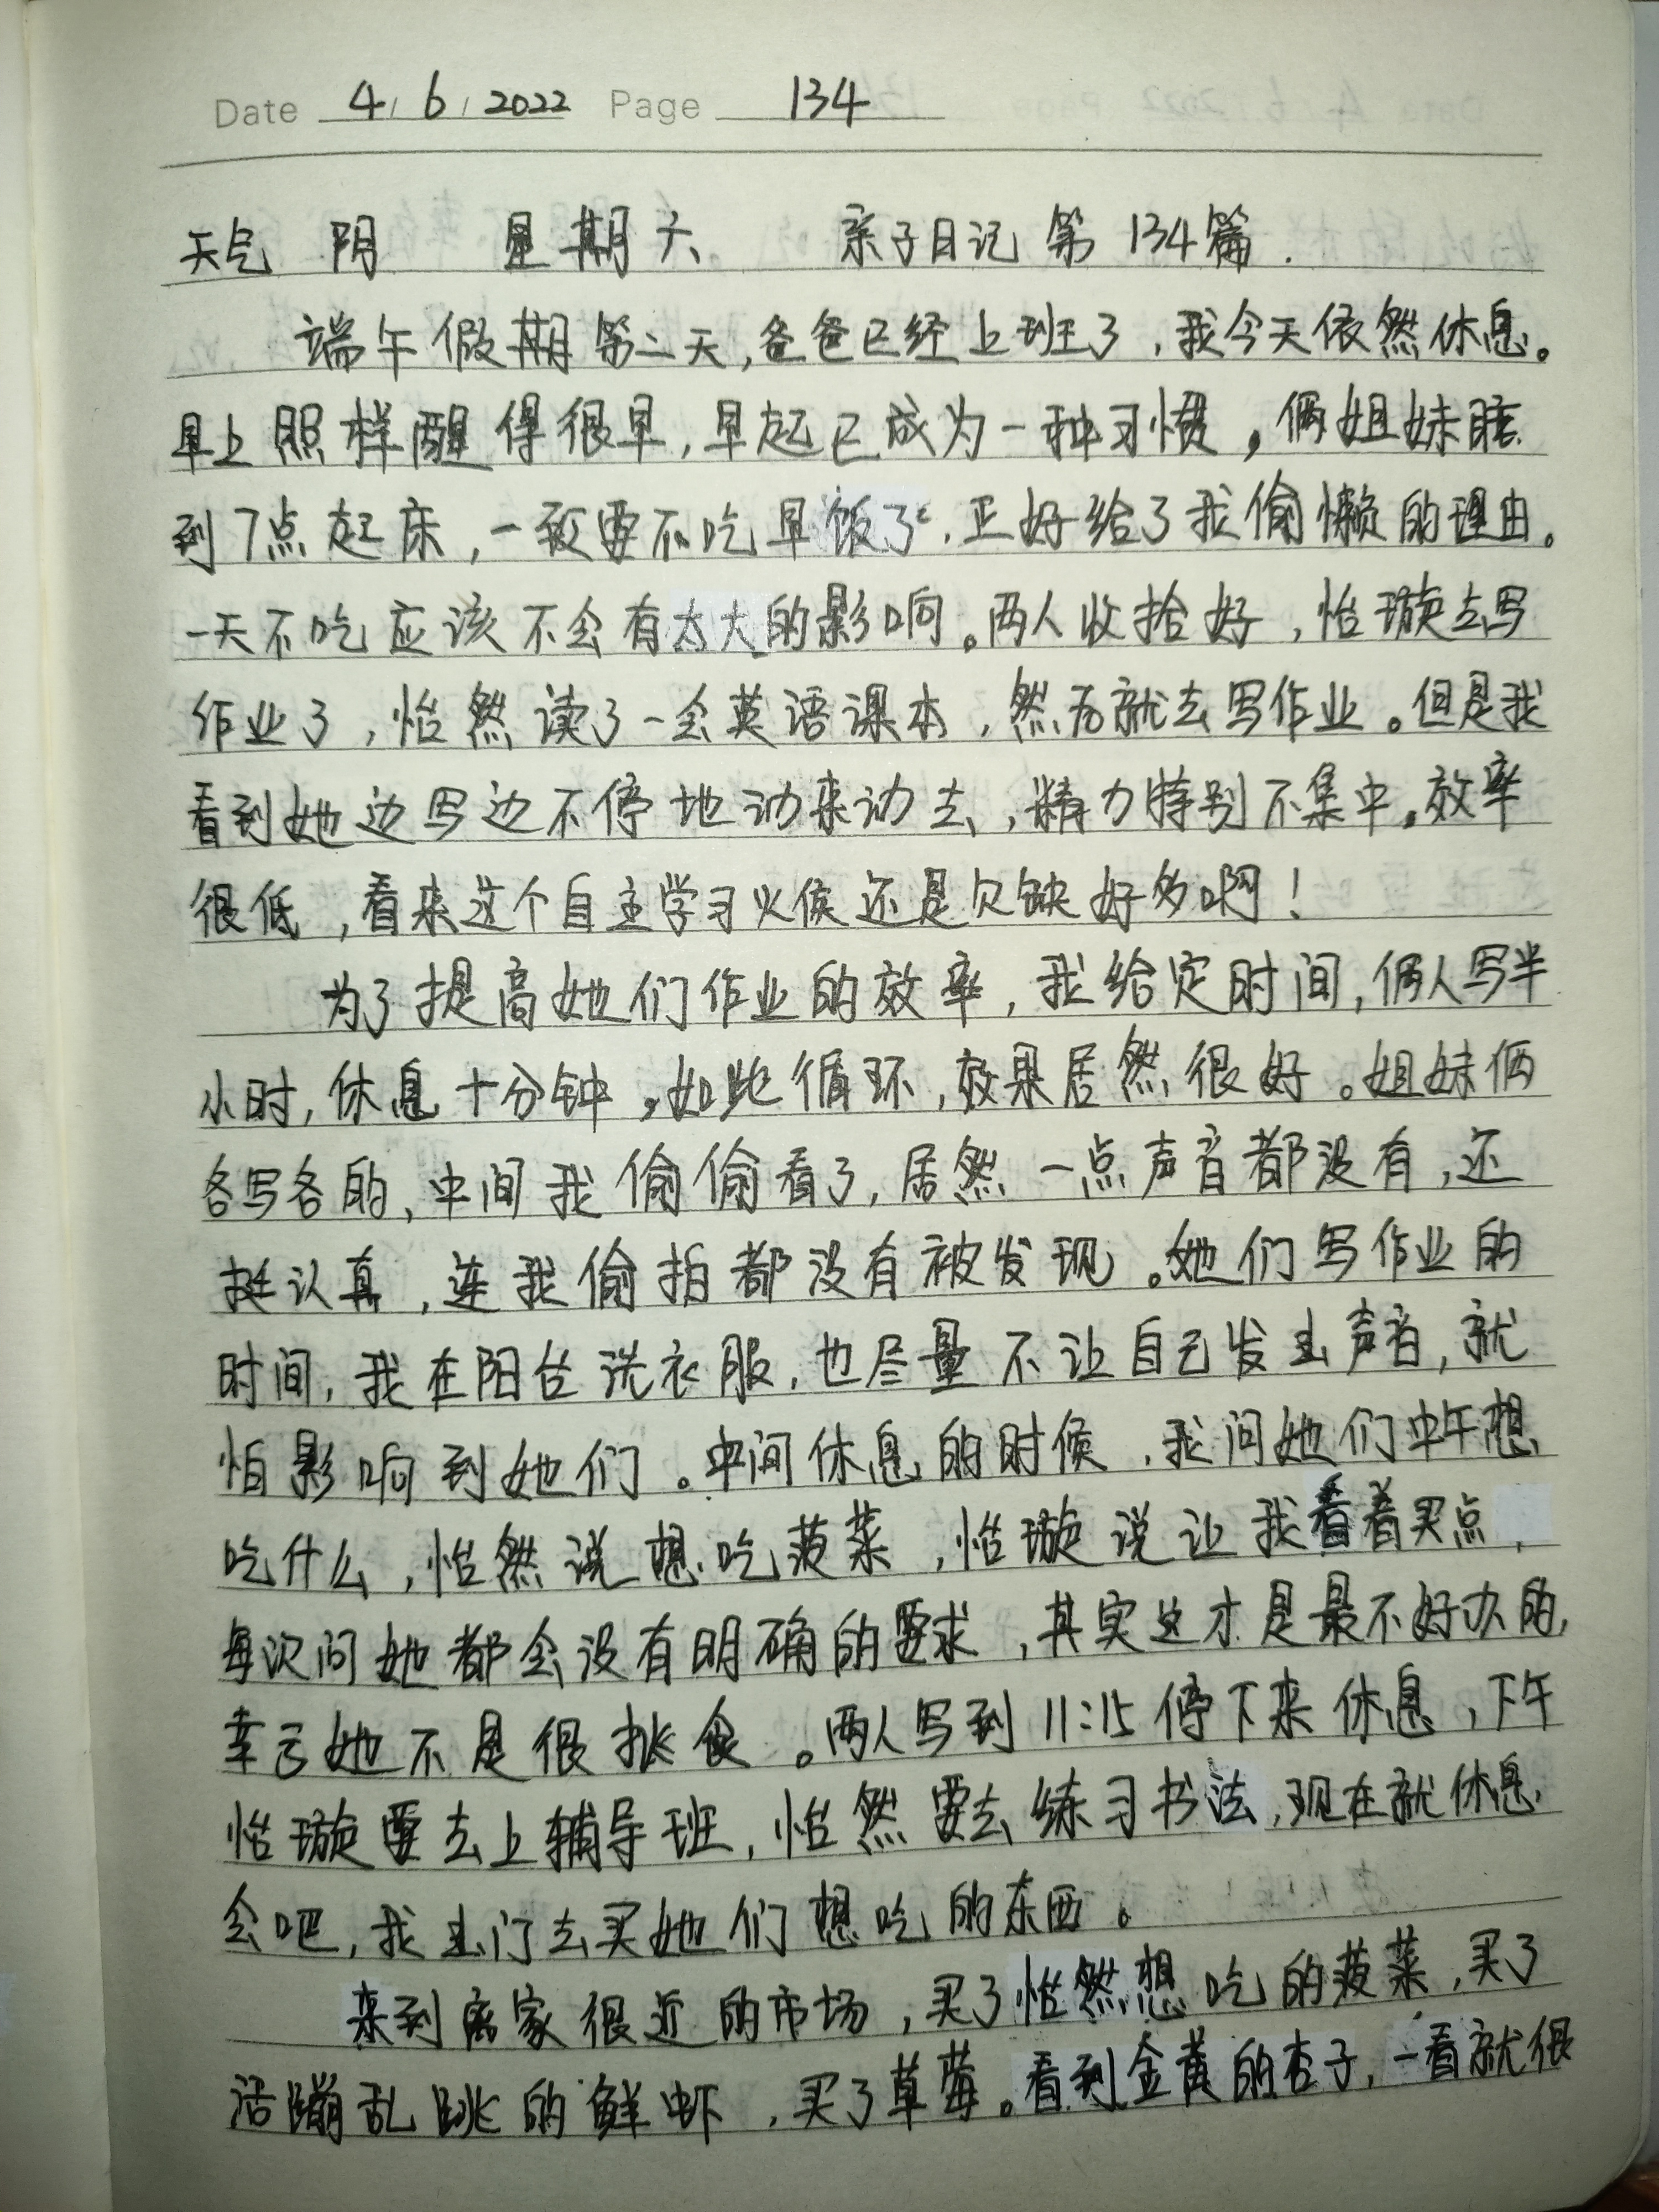 Date 4/6/2022 Page 134
天气 阴 星期六 亲子日记第134篇.
端午假期第二天,爸爸已经上班了,我今天依然休息。
早上照样醒得很早,早起已成为一种习惯。俩姐妹睡
到7点起床,一致要不吃早饭了,正好给了我偷懒的理由。
一天不吃应该不会有太大的影响。两人收拾好,怡璇去写
作业了,怡然读了一会英语课本,然后就去写作业。但是我
看到她边写边不停地动来动去,精力特别不集中。效率
很低,看来这个自主学习火候还是欠缺好多啊!
为了提高她们作业的效率,我给定时间,俩人写半
小时,休息十分钟。如此循环,效果居然很好。姐妹俩
各写各的,中间我偷偷看了,居然一点声音都没有,还
挺认真,连我偷拍都没有被发现。她们写作业的
时间,我在阳台洗衣服,也尽量不让自己发出声音,就
怕影响到她们。中间休息的时候,我问她们中午想
吃什么,怡然说想吃菠菜,怡璇说让我看着买点,
每次问她都会没有明确的要求,其实这才是最不好办的,
幸亏她不是很挑食。两人写到11:15停下来休息,下午
怡璇要去上辅导班,怡然要去练习书法,现在就休息
会吧,我出门去买她们想吃的东西。
来到离家很近的市场,买了怡然想吃的菠菜,买了
活蹦乱跳的鲜虾,买了草莓。看到金黄的杏子,一看就很